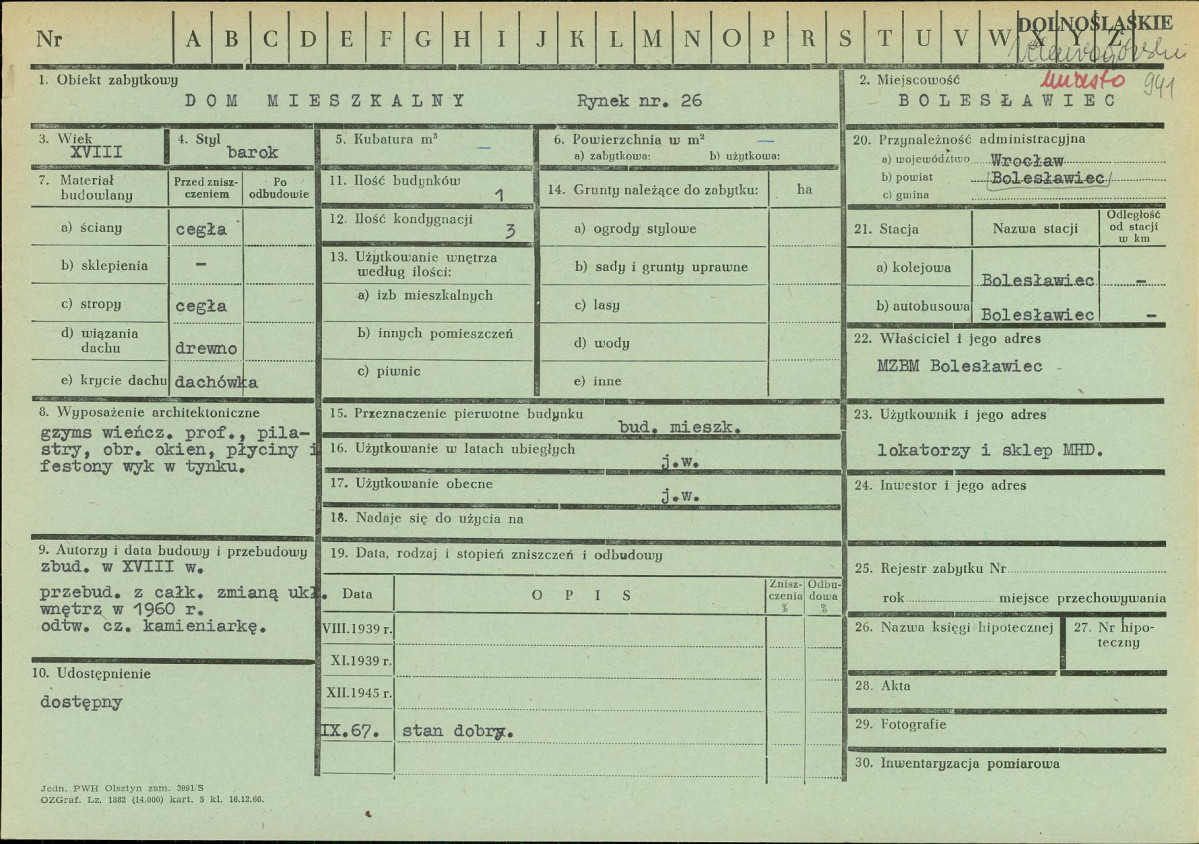 DOLNOŚLĄSKIE
Nr A B C D E F G H I J K L M N O P R S T U V W X Y Z
miasto 941
1. Obiekt zabytkowy
DOM MIESZKALNY Rynek nr. 26
2. Miejscowość
BOLESŁAWIEC
3. Wiek
XVIII
4. Styl
barok
5. Kubatura m³
—
6. Powierzchnia w m² —
a) zabytkowa: b) użytkowa:
7. Materiał budowlany
Przed zniszczeniem
Po odbudowie
a) ściany cegła
b) sklepienia –
c) stropy cegła
d) wiązania
dachu drewno
e) krycie dachu dachówka
11. Ilość budynków
1
12. Ilość kondygnacji
3
13. Użytkowanie wnętrza
według ilości:
a) izb mieszkalnych
b) innych pomieszczeń
c) piwnic
14. Grunty należące do zabytku: ha
a) ogrody stylowe
b) sady i grunty uprawne
c) lasy
d) wody
e) inne
8. Wyposażenie architektoniczne
gzyms wieńcz. prof., pila-
stry, obr. okien, płyciny i
festony wyk w tynku.
15. Przeznaczenie pierwotne budynku
bud. mieszk.
16. Użytkowanie w latach ubiegłych
j.w.
17. Użytkowanie obecne
j.w.
18. Nadaje się do użycia na
9. Autorzy i data budowy i przebudowy
zbud. w XVIII w.
przebud. z całk. zmianą ukł.
wnętrz w 1960 r.
odtw. cz. kamieniarkę.
10. Udostępnienie
dostępny
19. Data, rodzaj i stopień zniszczeń i odbudowy
Data OPIS Zniszczenia % Odbudowa %
VIII.1939 r.
XI.1939 r.
XII.1945 r.
IX.67. stan dobry.
20. Przynależność administracyjna
a) województwo Wrocław
b) powiat Bolesławiec
c) gmina
21. Stacja Nazwa stacji Odległość od stacji w km
a) kolejowa Bolesławiec –
b) autobusowa Bolesławiec –
22. Właściciel i jego adres
MZBM Bolesławiec
23. Użytkownik i jego adres
lokatorzy i sklep MHD.
24. Inwestor i jego adres
25. Rejestr zabytku Nr
rok miejsce przechowywania
26. Nazwa księgi hipotecznej
27. Nr hipo-
teczny
28. Akta
29. Fotografie
30. Inwentaryzacja pomiarowa
Jedn. PWH Olsztyn zam. 3991/S
OZGraf. Lz. 1882 (14.000) kart. 5 kl. 16.12.66.